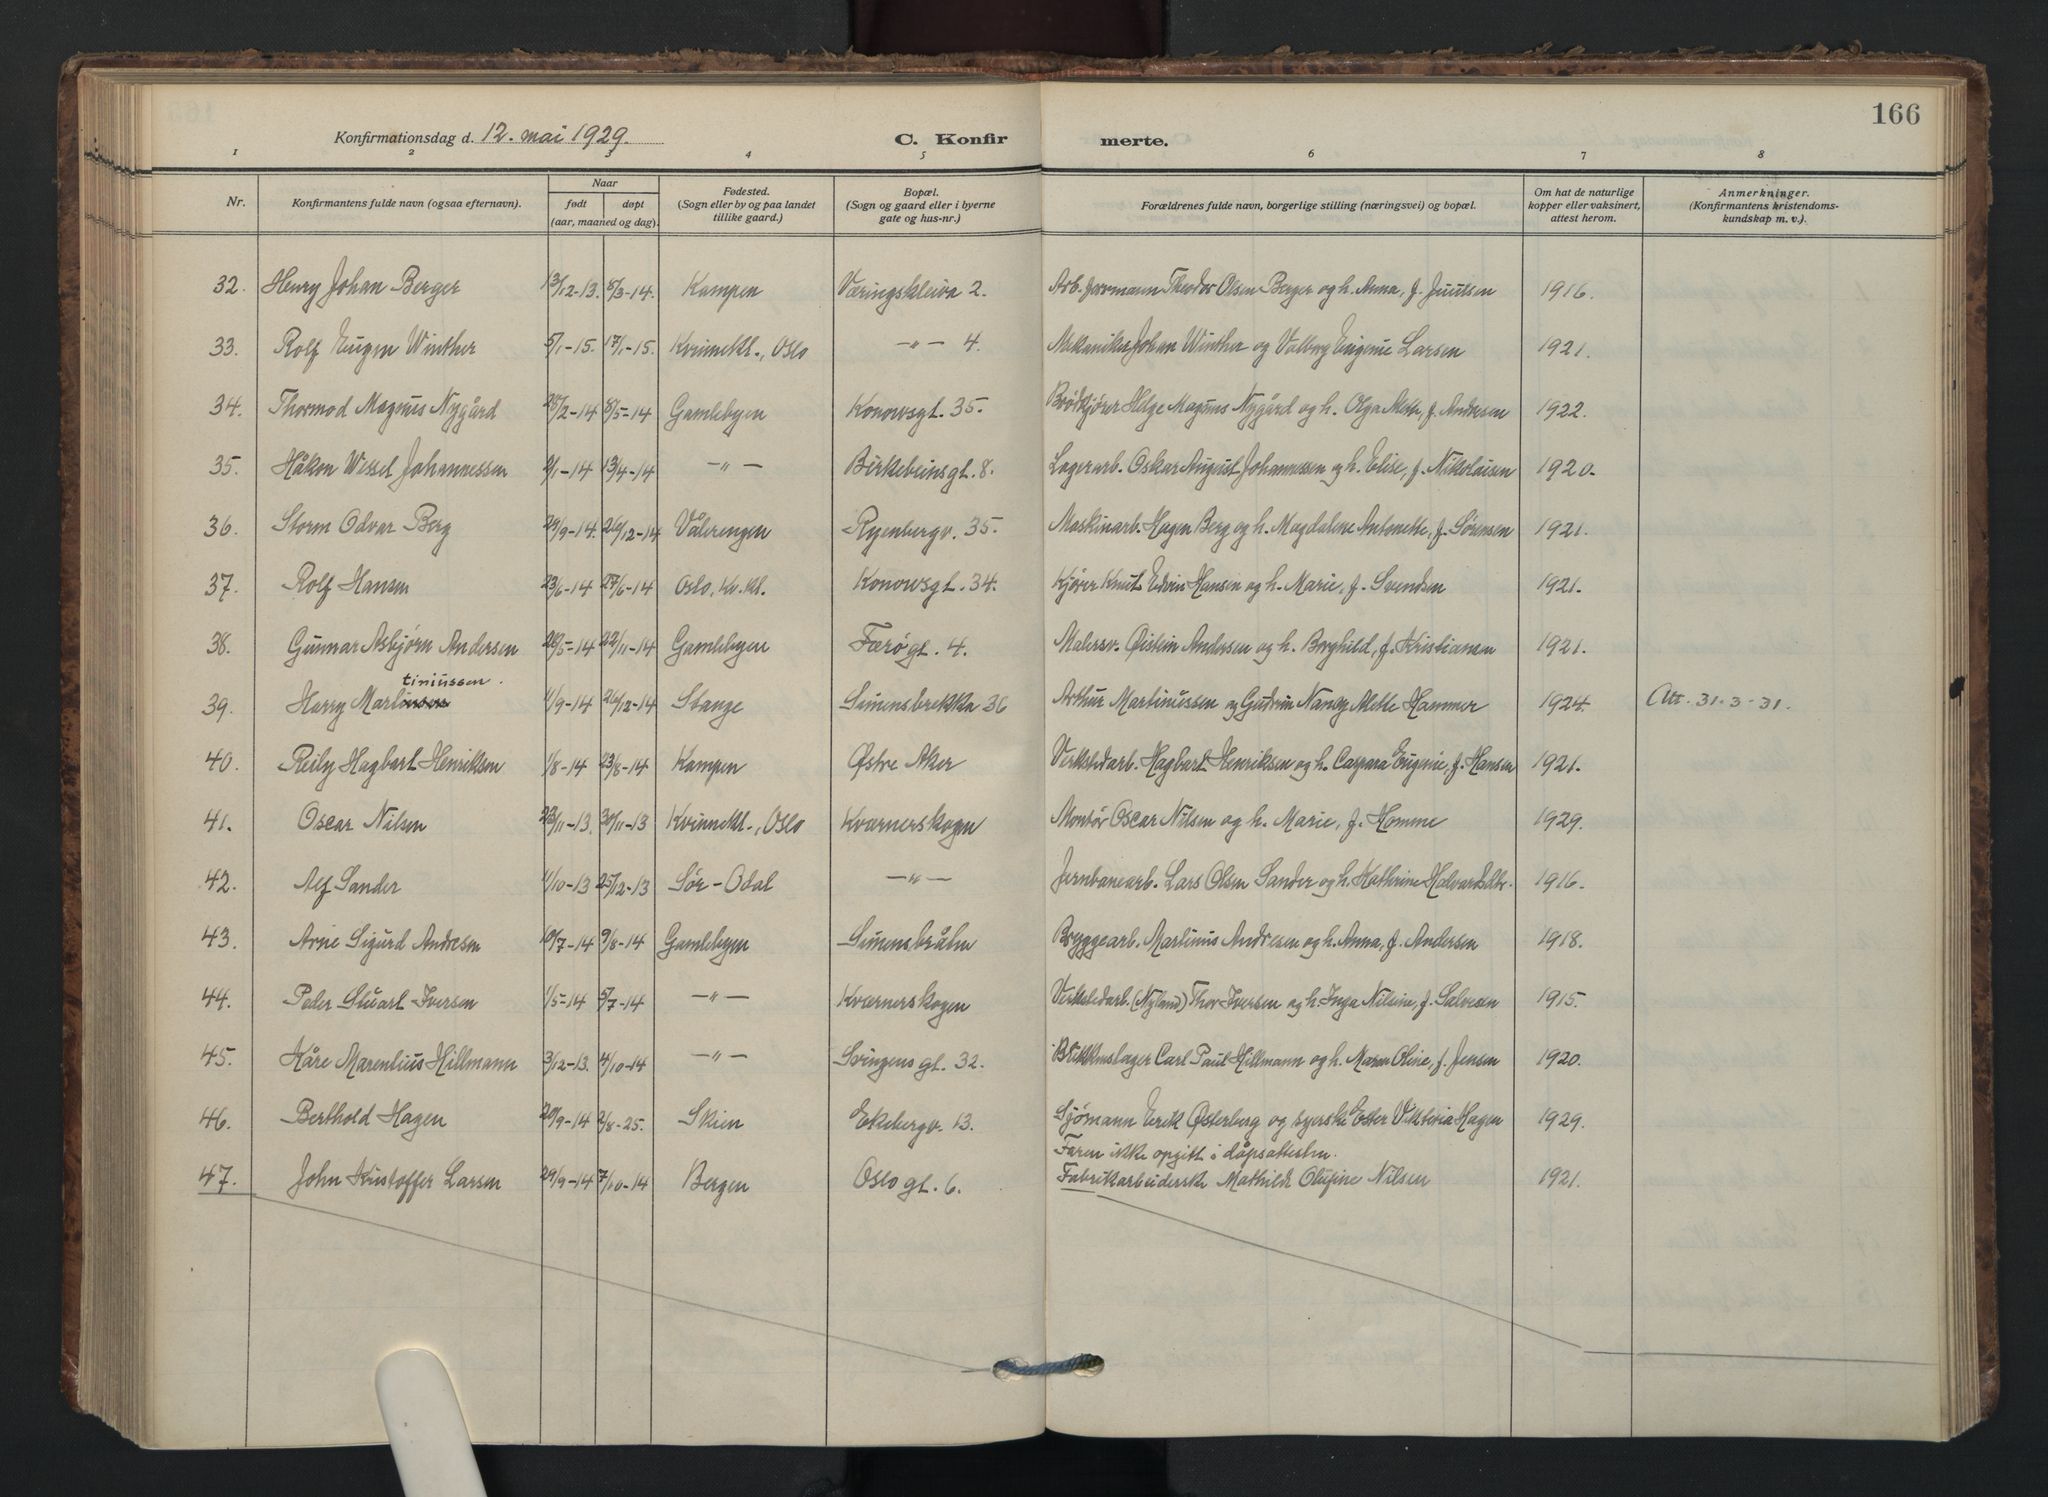 166
Konfirmationsdag d. 12. mai 1929.
C. Konfir merte.
1 2 3 4 5 6 7 8
Nr. Konfirmantens fulde navn (ogsaa efternavn). Naar født døpt (aar, maaned og dag). Fødested. (Sogn eller by og paa landet tillike gaard.) Bopæl. (Sogn og gaard eller i byerne gate og hus-nr.) Forældrenes fulde navn, borgerlige stilling (næringsvei) og bopæl. Om hat de naturlige kopper eller vaksinert, attest herom. Anmerkninger. (Konfirmantens kristendoms-kundskap m. v.)
32. Henry Johan Berger 13/12-13. 8/3-14. Kampen Væringskleiva 2. Arb. formann Theodor Olsen Berger og h. Anna, f. Juulsen 1916.
33. Rolf Eugen Winther 5/1-15. 17/1-15. Kvinnekl., Oslo -"- 4. Mekaniker Johan Winther og Valborg Eugenie Larsen 1921.
34. Thormod Magnus Nygård /2-14 8/5-14 Gamlebyen Konowsgt. 35. Brødkjører Helge Magnus Nygård og h. Olga Mette, f. Andresen 1922.
35. Håkon Wessel Johannessen 2/1-14 13/4-14 -"- Birkebeinsgt. 8. Lagerarb. Oskar August Johannessen og h. Elise, f. Nikolaisen 1920.
36. Storm Odvar Berg 29/9-14. 26/12-14 Vålerengen Ryenbergv. 35. Maskinarb. Hagen Berg og h. Magdalene Antonette, f. Sørensen 1921.
37. Rolf Hansen 23/6-14 27/6-14 Oslo, Kv. kl. Konowsgt. 34. Kjører Knut Edvin Hansen og h. Marie, f. Svendsen 1921.
38. Gunnar Asbjørn Andersen 26/5-14 22/11-14 Gamlebyen Færøgt. 4. Malersv. Øistein Andersen og h. Borghild, f. Kristiansen 1921.
tiniussen.
39. Harry Martinsen 4/9-14 26/12-14 Stange Simensbrekka 36 Arthur Martinussen og Gudrun Nancy Alette Hammer 1924. Att. 31-3-31.
40. Reily Hagbart Henriksen 1/8-14 23/8-14 Kampen Østre Aker Verkstedarb. Hagbart Henriksen og h. Caspara Eugenie, f. Hansen 1921.
41. Oscar Nilsen 23/11-13. 30/11-13 Kvinnekl., Oslo Kværnerskogen Montør Oscar Nilsen og h. Marie, f. Homme 1929.
42. Alf Sander 4/10-13 25/12-13 Sør-Odal -"- Jernbanearb. Lars Olsen Sander og h. Kathrine Halvardsdtr. 1916.
43. Arne Sigurd Andresen 10/7-14 9/8-14 Gamlebyen Simensbråten Bryggearb. Martinius Andresen og h. Anna, f. Andersen 1918.
44. Peder Stuart Iversen 1/5-14 5/7-14 -"- Kværnerskogen Verkstedarb. (Nyland) Thor Iversen og h. Inga Nilsine, f. Salvesen 1915.
45. Kåre Marentius Hillmann 3/12-13. 4/10-14 -"- Svingens gt. 32. Blikkenslager Carl Paul Hillmann og h. Maren Oline, f. Jensen 1920.
46. Berthold Hagen 20/9-14 2/8-25. Skien Ekebergv. 13. Sjømann Erik Østerberg og syerske Ester Viktoria Hagen 1929.
Faren ikke opgitt i dåpsattesten.
47. John Kristoffer Larsen 29/9-14 7/10-14 Bergen Oslo gt. 6. Fabrikarbeiderske Mathilde Olufine Nilsen 1921.